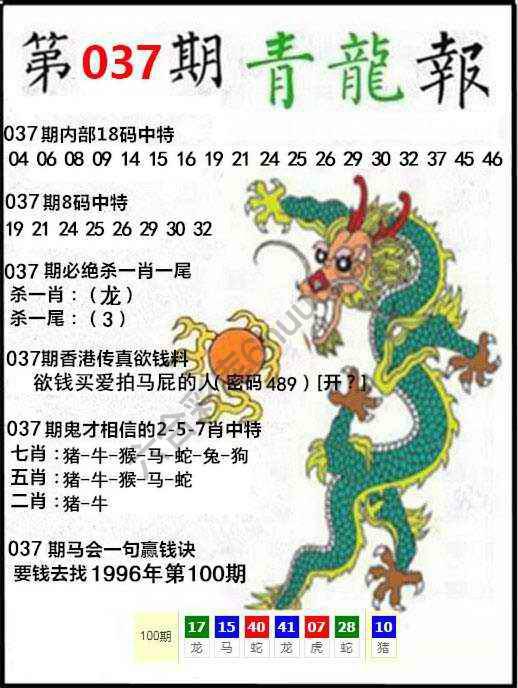 第037期青龍報
037期内部18码中特
04 06 08 09 14 15 16 19 21 24 25 26 29 30 32 37 45 46
037期8码中特
19 21 24 25 26 29 30 32
037期必绝杀一肖一尾
杀一肖：（龙）
杀一尾：（3）
037期香港传真欲钱料
欲钱买爱拍马屁的人(密码489)[开?]
037期鬼才相信的2-5-7肖中特
七肖：猪-牛-猴-马-蛇-兔-狗
五肖：猪-牛-猴-马-蛇
二肖：猪-牛
037期马会一句赢钱诀
要钱去找1996年第100期
100期 17 15 40 41 07 28 10
龙 马 蛇 龙 虎 蛇 猪